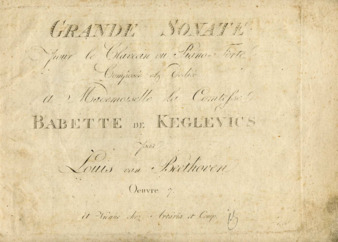 GRANDE SONATE
pour le Clavecin ou Piano-Forte
Composée et Dediée
a Mademoiselle la Comtesse
BABETTE DE KEGLEVICS
par
Louis van Beethoven
Oeuvre 7
a Vienne chez Artaria et Comp.